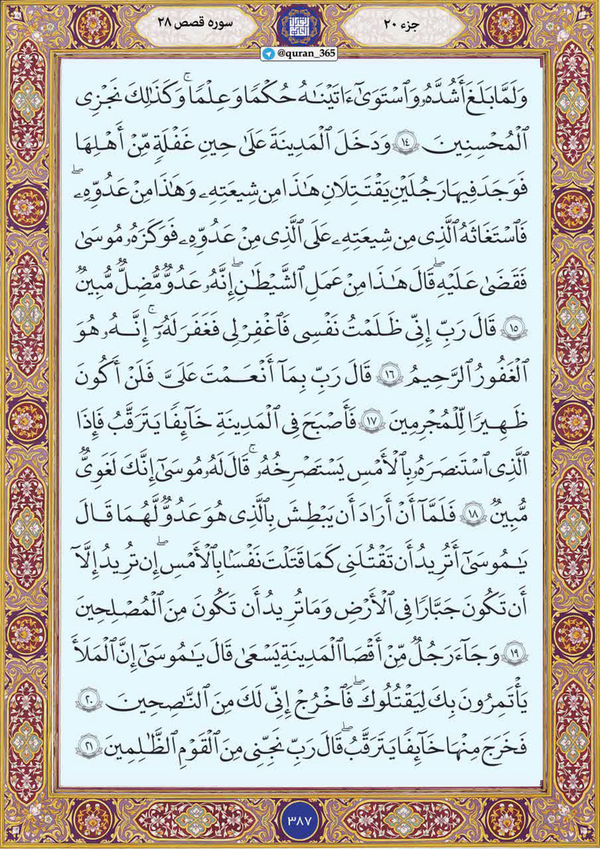 جزء ۲۰
سوره قصص ۲۸
@quran_365
وَلَمَّا بَلَغَ أَشُدَّهُۥ وَٱسْتَوَىٰٓ ءَاتَيْنَـٰهُ حُكْمًا وَعِلْمًا ۚ وَكَذَٰلِكَ نَجْزِى
ٱلْمُحْسِنِينَ ١٤ وَدَخَلَ ٱلْمَدِينَةَ عَلَىٰ حِينِ غَفْلَةٍ مِّنْ أَهْلِهَا
فَوَجَدَ فِيهَا رَجُلَيْنِ يَقْتَتِلَانِ هَـٰذَا مِن شِيعَتِهِۦ وَهَـٰذَا مِنْ عَدُوِّهِۦ ۖ
فَٱسْتَغَـٰثَهُ ٱلَّذِى مِن شِيعَتِهِۦ عَلَى ٱلَّذِى مِنْ عَدُوِّهِۦ فَوَكَزَهُۥ مُوسَىٰ
فَقَضَىٰ عَلَيْهِ ۖ قَالَ هَـٰذَا مِنْ عَمَلِ ٱلشَّيْطَـٰنِ ۖ إِنَّهُۥ عَدُوٌّ مُّضِلٌّ مُّبِينٌ
١٥ قَالَ رَبِّ إِنِّى ظَلَمْتُ نَفْسِى فَٱغْفِرْ لِى فَغَفَرَ لَهُۥٓ ۚ إِنَّهُۥ هُوَ
ٱلْغَفُورُ ٱلرَّحِيمُ ١٦ قَالَ رَبِّ بِمَآ أَنْعَمْتَ عَلَىَّ فَلَنْ أَكُونَ
ظَهِيرًا لِّلْمُجْرِمِينَ ١٧ فَأَصْبَحَ فِى ٱلْمَدِينَةِ خَآئِفًا يَتَرَقَّبُ فَإِذَا
ٱلَّذِى ٱسْتَنصَرَهُۥ بِٱلْأَمْسِ يَسْتَصْرِخُهُۥ ۚ قَالَ لَهُۥ مُوسَىٰٓ إِنَّكَ لَغَوِىٌّ
مُّبِينٌ ١٨ فَلَمَّآ أَنْ أَرَادَ أَن يَبْطِشَ بِٱلَّذِى هُوَ عَدُوٌّ لَّهُمَا قَالَ
يَـٰمُوسَىٰٓ أَتُرِيدُ أَن تَقْتُلَنِى كَمَا قَتَلْتَ نَفْسًۢا بِٱلْأَمْسِ ۖ إِن تُرِيدُ إِلَّآ
أَن تَكُونَ جَبَّارًا فِى ٱلْأَرْضِ وَمَا تُرِيدُ أَن تَكُونَ مِنَ ٱلْمُصْلِحِينَ
١٩ وَجَآءَ رَجُلٌ مِّنْ أَقْصَا ٱلْمَدِينَةِ يَسْعَىٰ قَالَ يَـٰمُوسَىٰٓ إِنَّ ٱلْمَلَأَ
يَأْتَمِرُونَ بِكَ لِيَقْتُلُوكَ فَٱخْرُجْ إِنِّى لَكَ مِنَ ٱلنَّـٰصِحِينَ ٢٠
فَخَرَجَ مِنْهَا خَآئِفًا يَتَرَقَّبُ ۖ قَالَ رَبِّ نَجِّنِى مِنَ ٱلْقَوْمِ ٱلظَّـٰلِمِينَ ٢١
٣٨٧